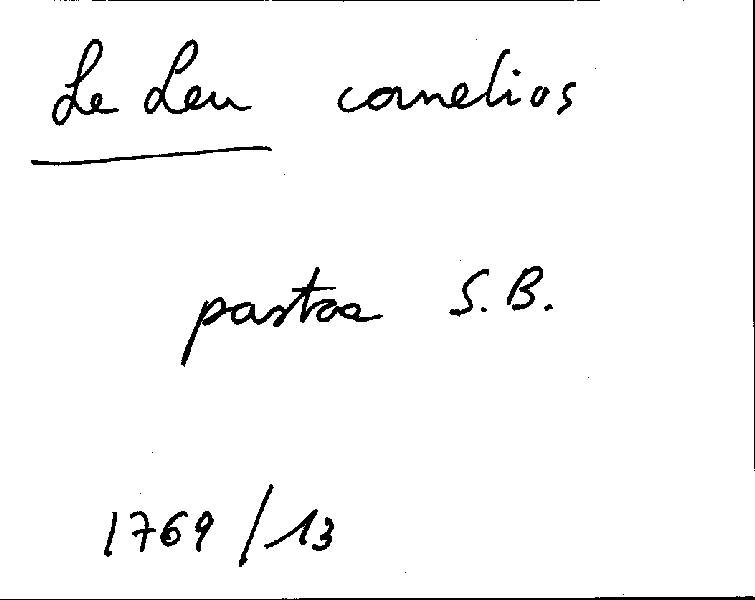 Le Leu cornelios
pastoe S.B.
1769/13